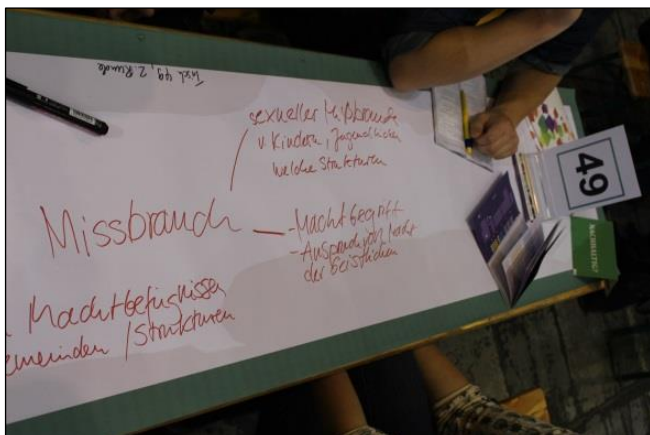 Tisch 49, 2. Runde
sexueller Mißbrauch
v. Kindern, Jugendlichen
welche Strukturen
Missbrauch
- Machtbegriff
- Anspruch von
der Geistlichen
Machtbefugnissen
emeinden / Strukturen
49
NACHHALTIG?